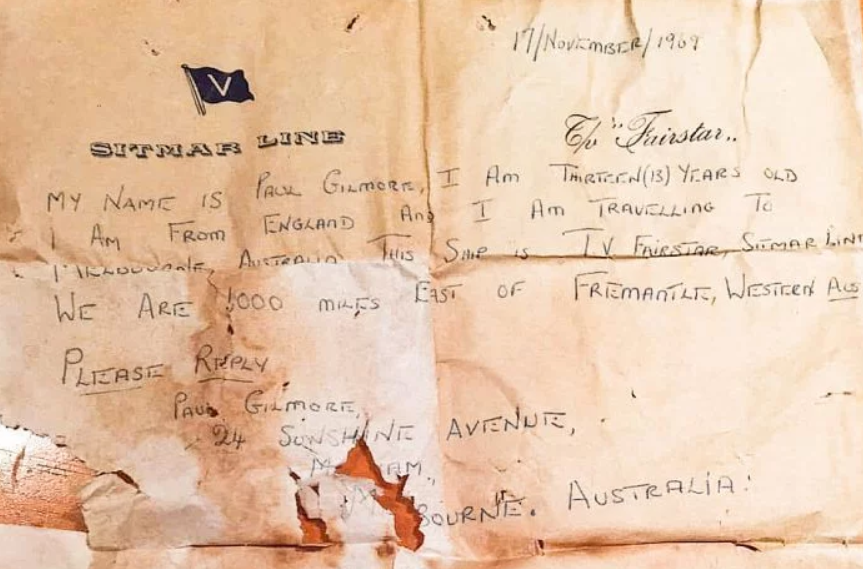 17/NOVEMBER/1969
V
SITMAR LINE
T/v "Fairstar"
MY NAME IS PAUL GILMORE, I AM THIRTEEN (13) YEARS OLD
I AM FROM ENGLAND AND I AM TRAVELLING TO
MELBOURNE, AUSTRALIA THIS SHIP IS T.V FAIRSTAR, SITMAR LINE
WE ARE 1000 MILES EAST OF FREMANTLE, WESTERN AUS
PLEASE REPLY
PAUL GILMORE,
24 SUNSHINE AVENUE,
BOURNE. AUSTRALIA.